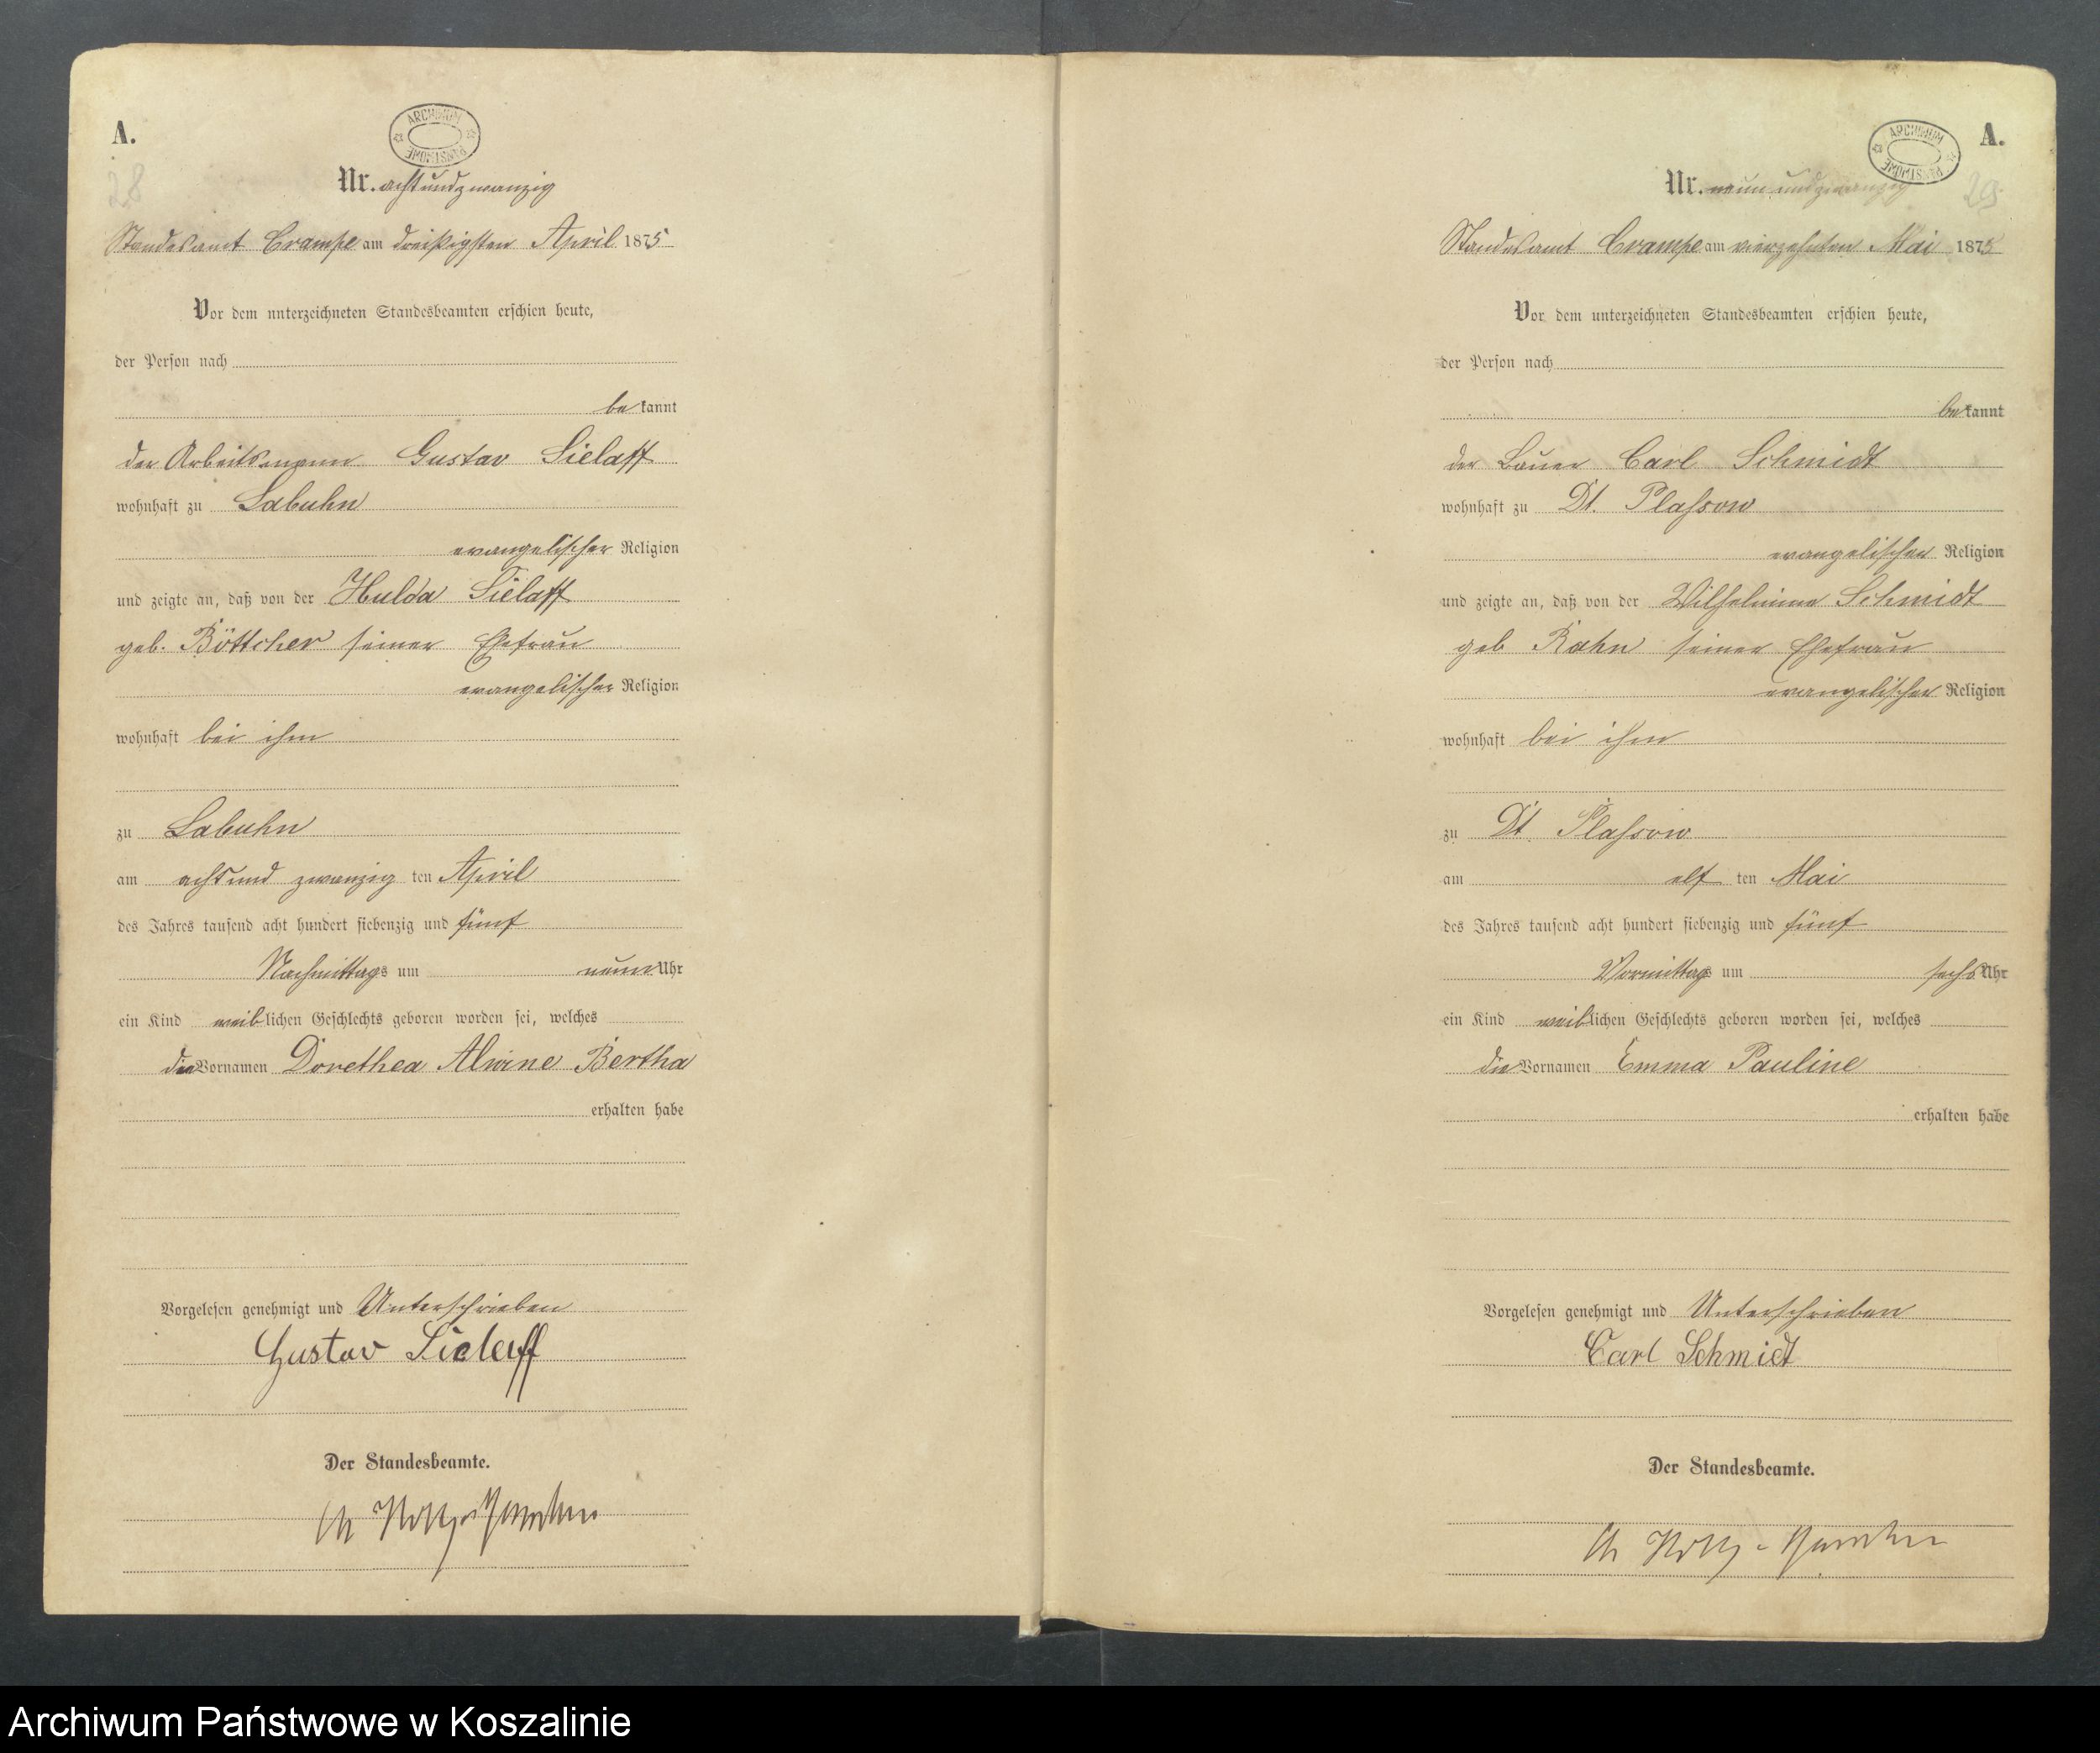 A.
ARCHIWUM
PAŃSTWOWE
28
Nr. achtundzwanzig
Standesamt Crampe am dreißigsten April 1875
Vor dem unterzeichneten Standesbeamten erschien heute,
der Person nach
bekannt
der Arbeitsmann Gustav Sielaff
wohnhaft zu Labuhn
evangelischer Religion
und zeigte an, daß von der Hulda Sielaff
geb. Böttcher seiner Ehefrau
evangelischer Religion
wohnhaft bei ihm
zu Labuhn
am achtund zwanzig ten April
des Jahres tausend acht hundert siebenzig und fünf
Nachmittags um neun Uhr
ein Kind weiblichen Geschlechts geboren worden sei, welches
die Vornamen Dorethea Alwine Bertha
erhalten habe
Vorgelesen genehmigt und Unterschrieben
Gustav Sielaff
Der Standesbeamte.
A.
ARCHIWUM
PAŃSTWOWE
29
Nr. neun und zwanzig
Standesamt Crampe am vierzehnten Mai 1875
Vor dem unterzeichneten Standesbeamten erschien heute,
der Person nach
bekannt
der Bauer Carl Schmidt
wohnhaft zu Dt. Plassow
evangelischer Religion
und zeigte an, daß von der Wilhelmine Schmidt
geb Rahn seiner Ehefrau
evangelischer Religion
wohnhaft bei ihm
zu Dt. Plassow
am elf ten Mai
des Jahres tausend acht hundert siebenzig und fünf
Vormittags um sechs Uhr
ein Kind weiblichen Geschlechts geboren worden sei, welches
die Vornamen Emma Pauline
erhalten habe
Vorgelesen genehmigt und Unterschrieben
Carl Schmidt
Der Standesbeamte.
Archiwum Państwowe w Koszalinie